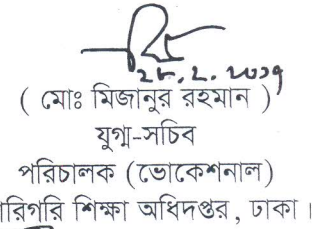 ২৮.২.২০১৭
( মোঃ মিজানুর রহমান )
যুগ্ম-সচিব
পরিচালক (ভোকেশনাল)
রিগরি শিক্ষা অধিদপ্তর, ঢাকা।